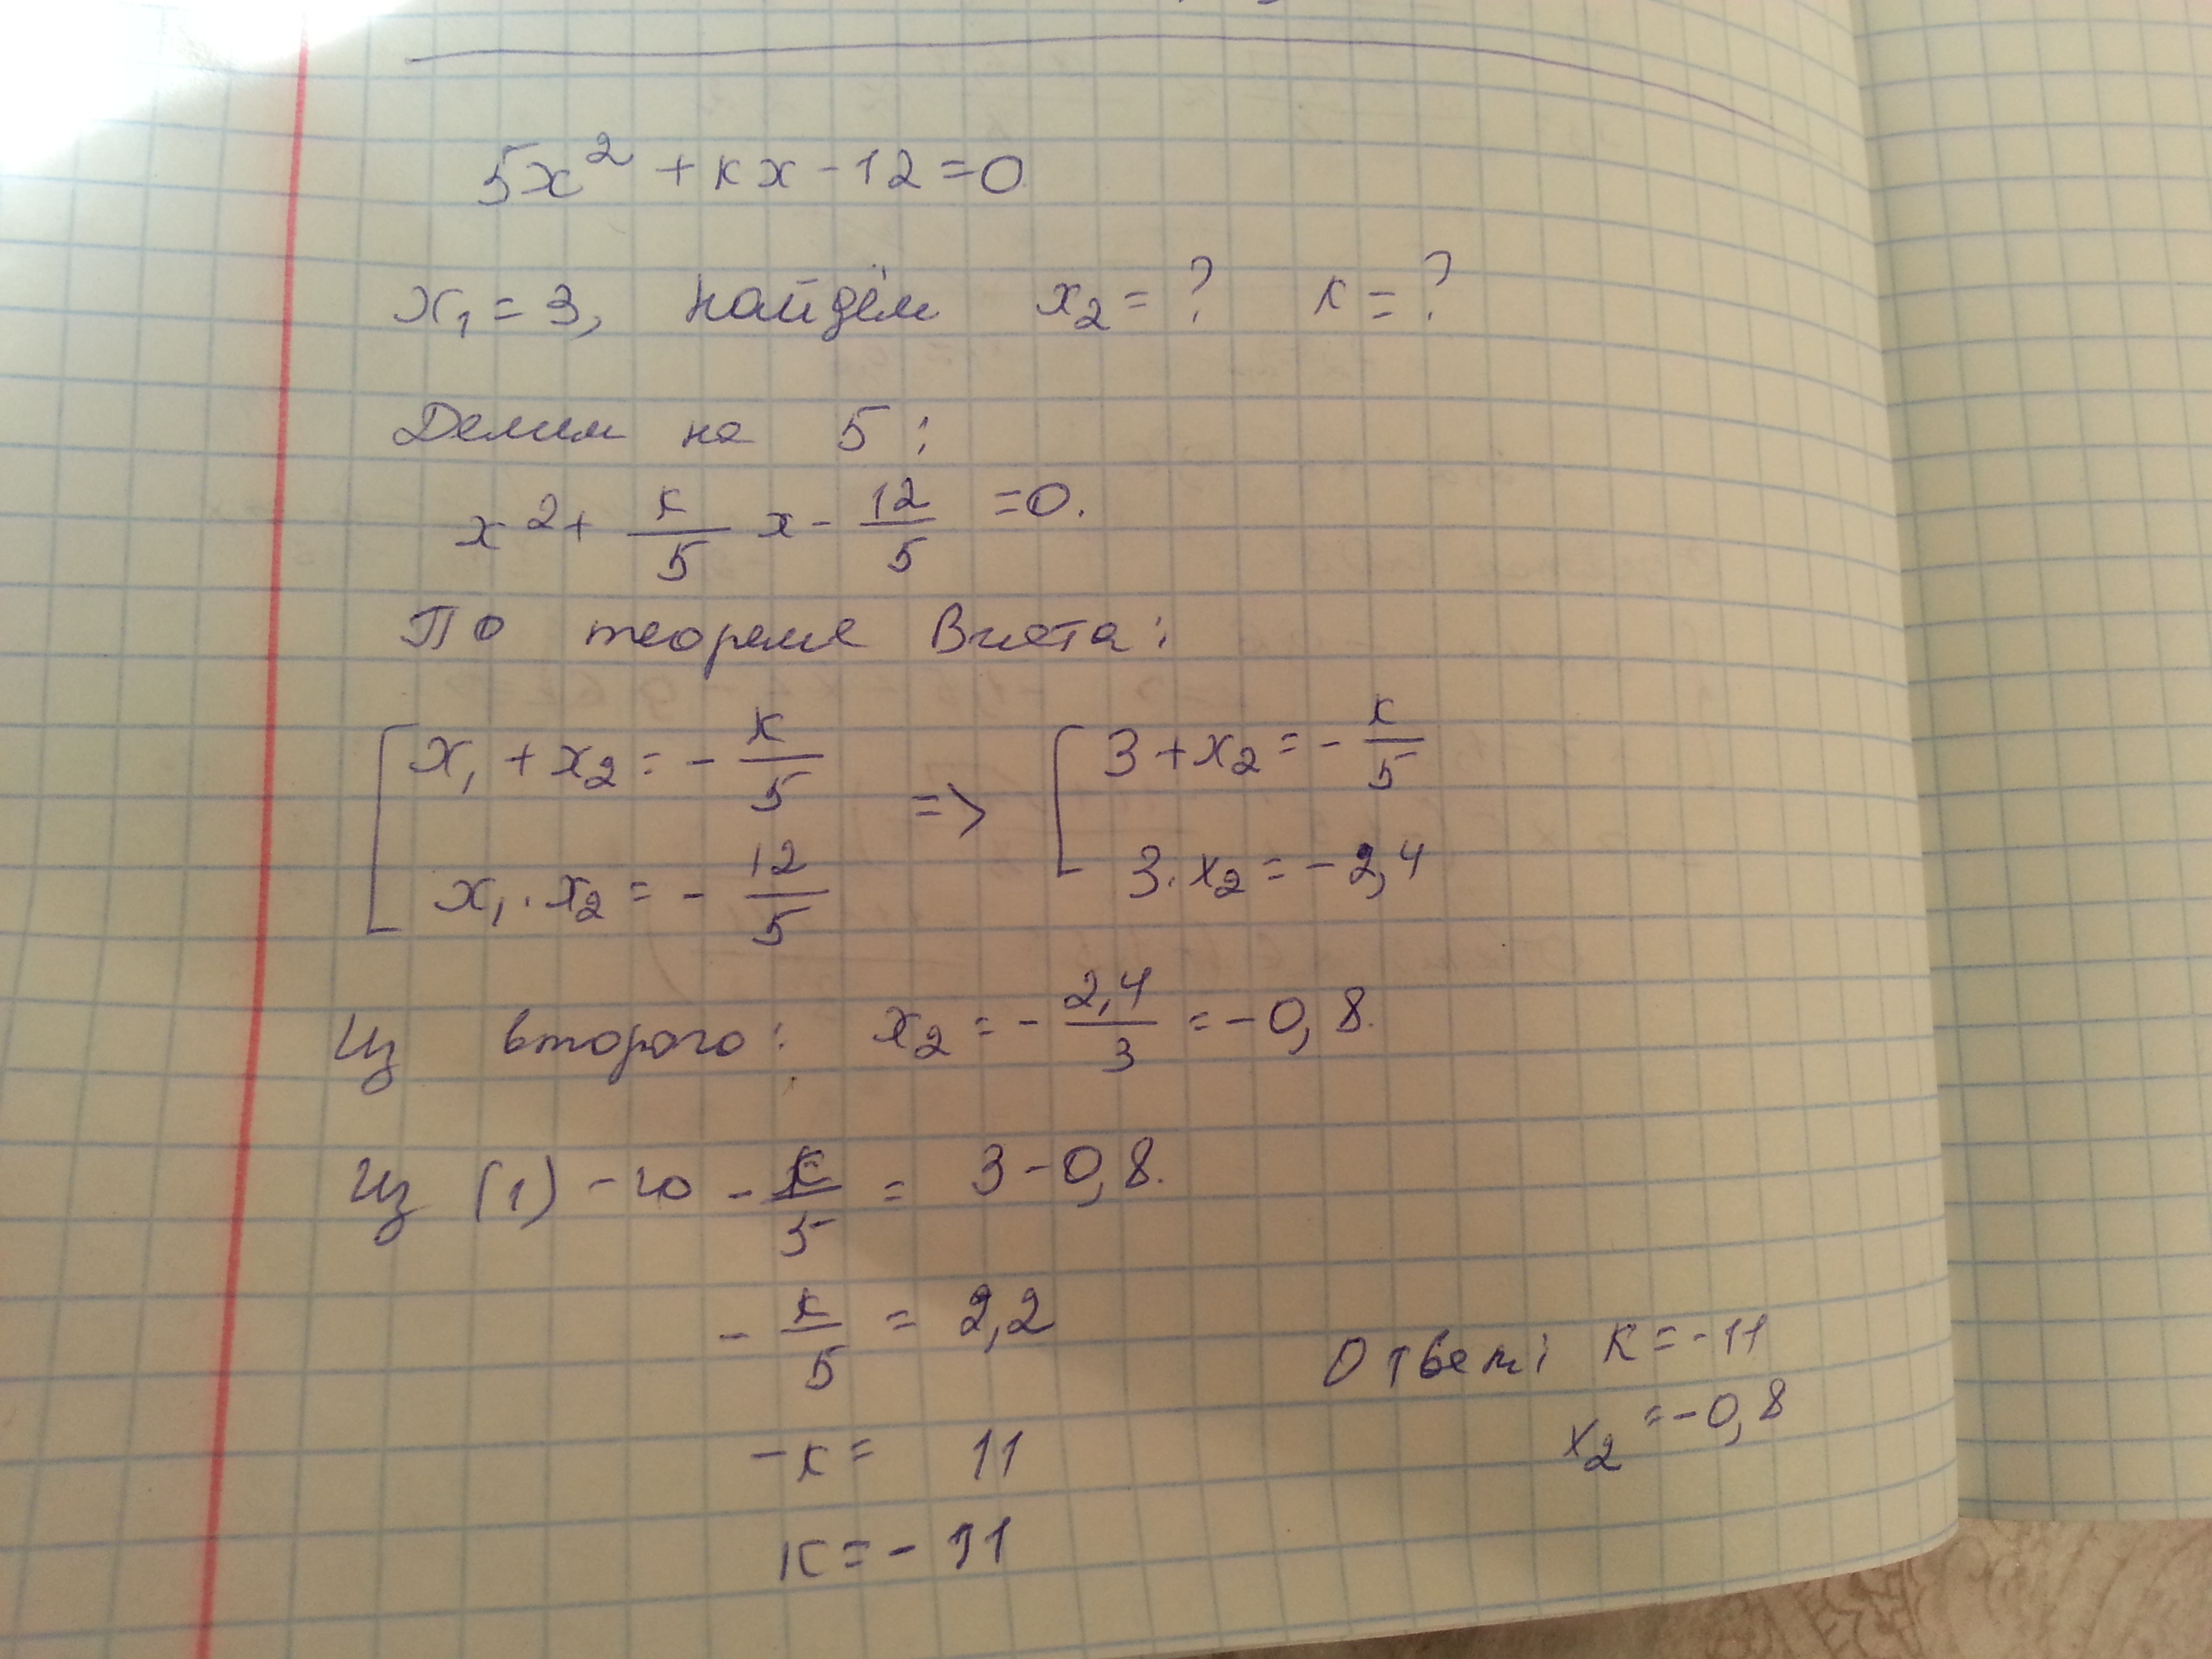 5x² + кx - 12 = 0
x₁ = 3, найдём x₂ = ? к = ?
Делим на 5:
x² + к/5 x - 12/5 = 0.
По теореме Виета:
[ x₁ + x₂ = - к/5 => [ 3 + x₂ = - к/5
x₁ · x₂ = - 12/5 3 · x₂ = - 2,4
Из второго: x₂ = - 2,4/3 = - 0,8.
Из (1) - го - к/5 = 3 - 0,8.
- к/5 = 2,2
- к = 11
к = - 11
Ответ: к = - 11
x₂ = - 0,8